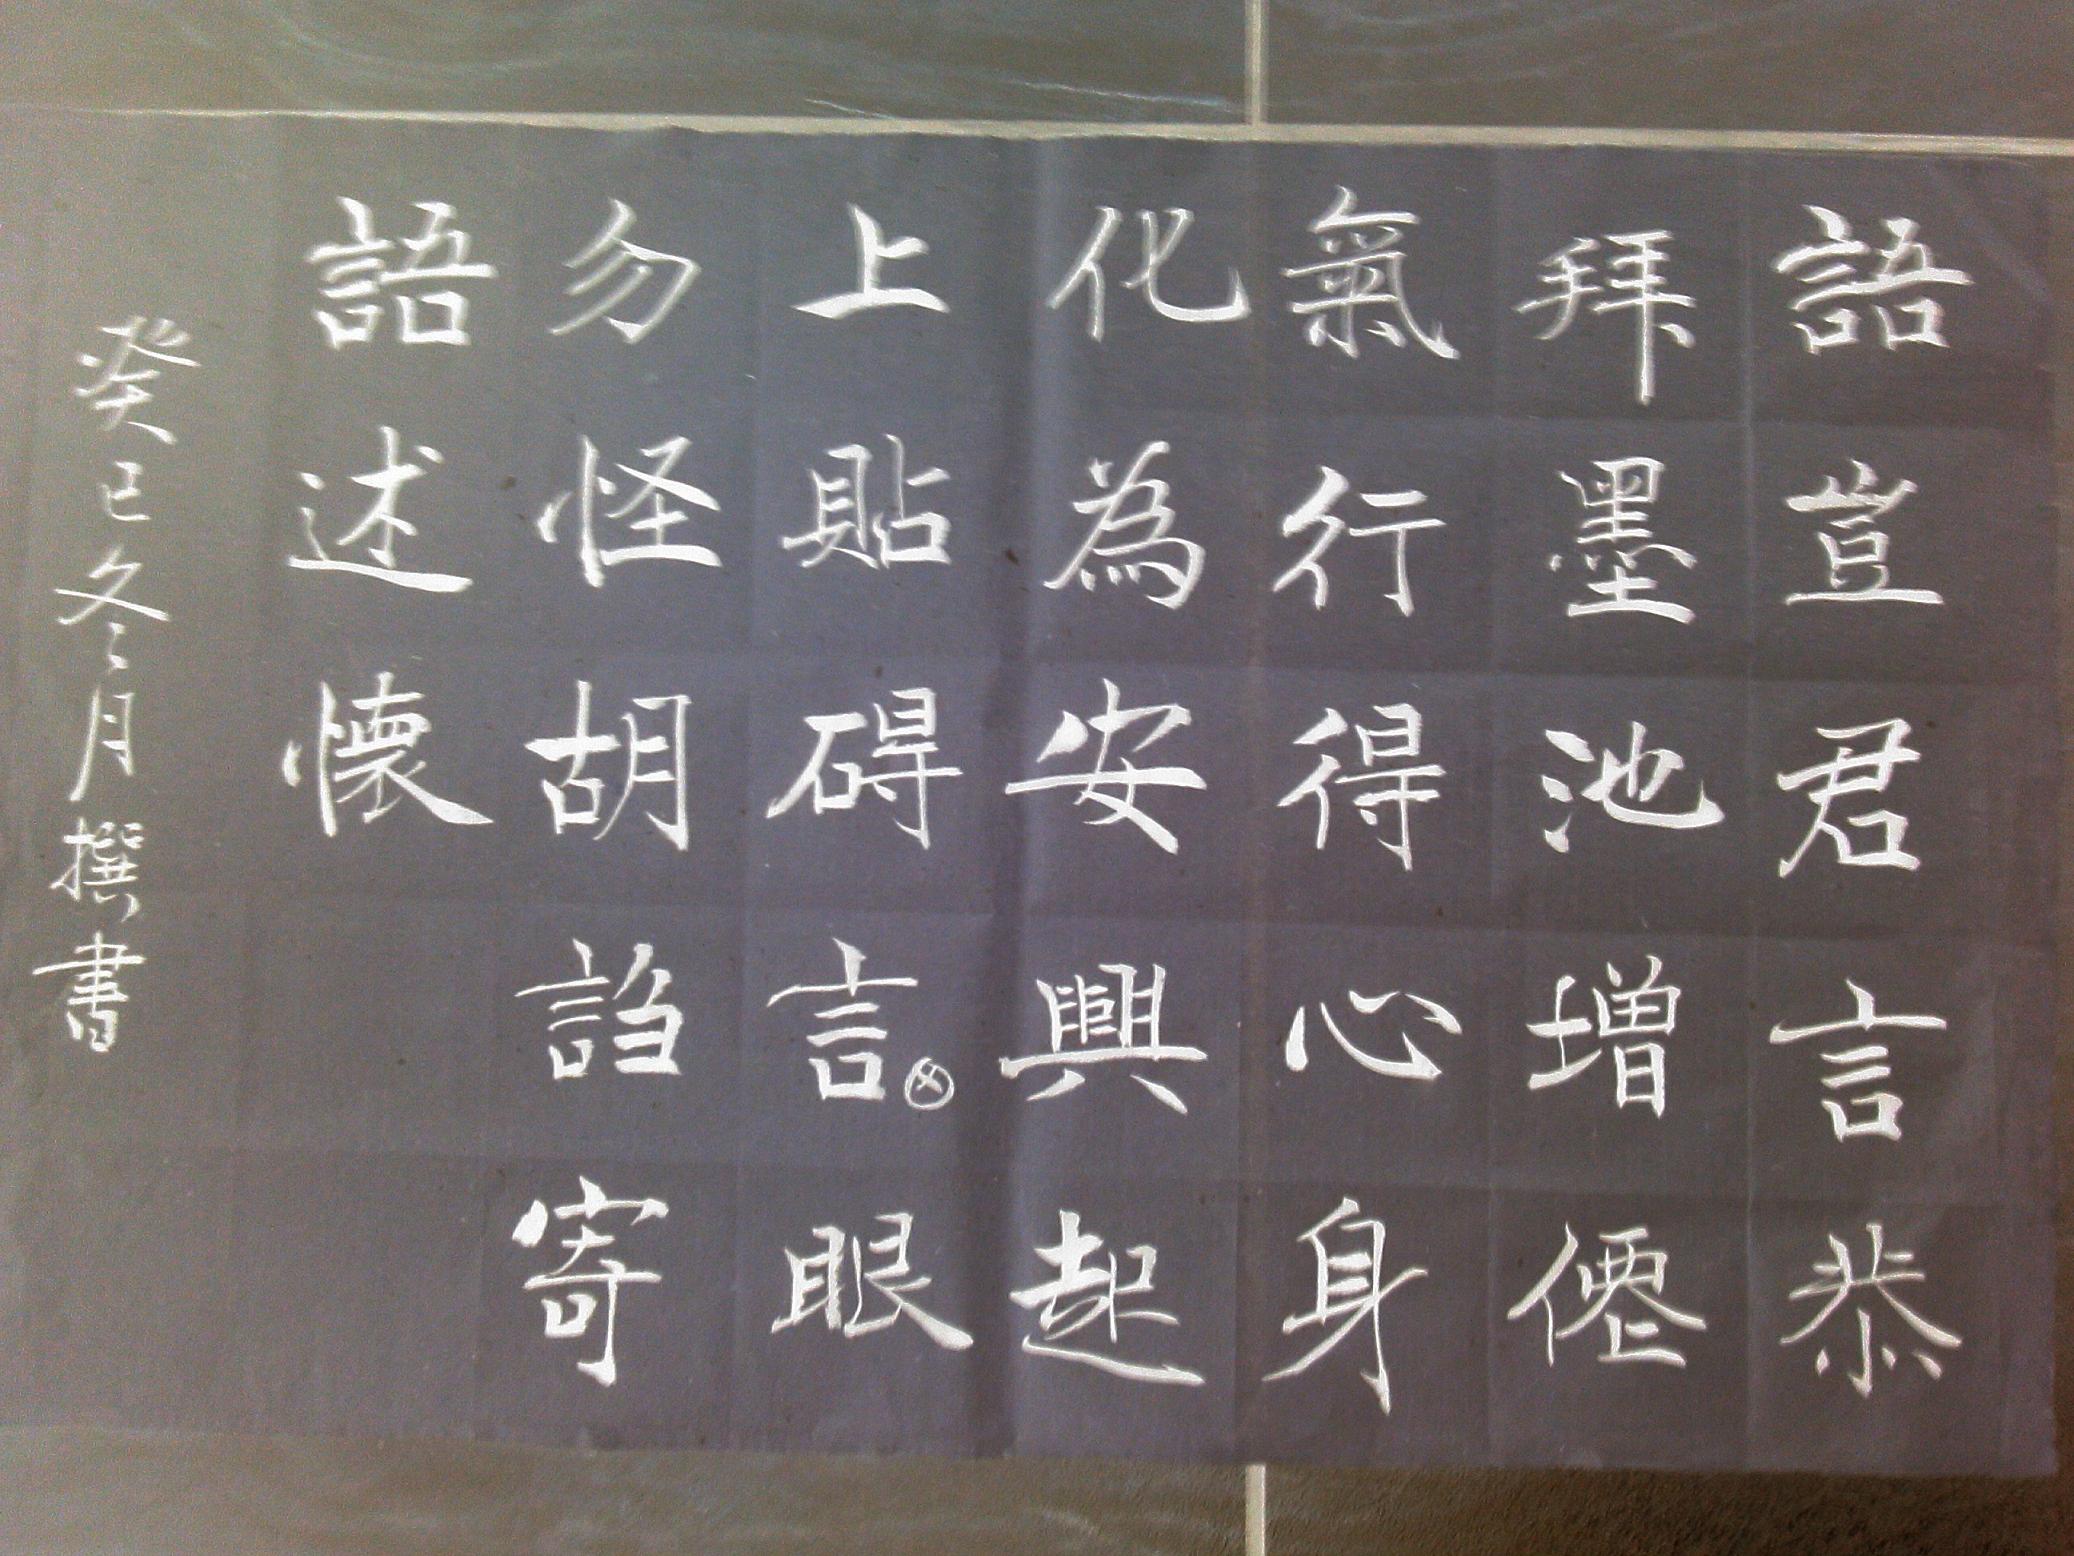 語豈君言恭
拜墨池增僊
氣行得心身
化為安興起
上貼碍言眼
勿怪胡謅寄
語述懷
癸巳冬月撰書